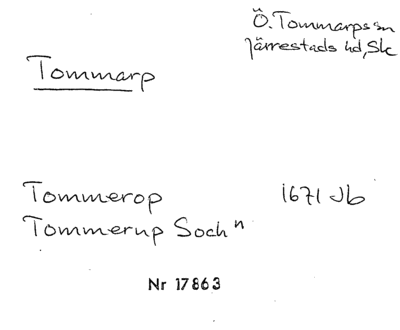 Ö. Tommarps sn
Järrestads hd, Sk
Tommarp
Tommerop 1671 Jb
Tommerup Sochn
Nr 17863